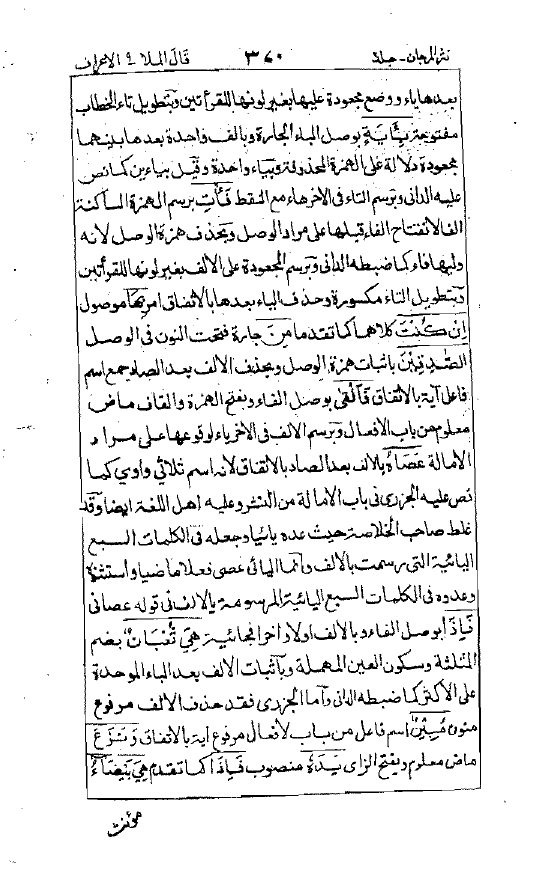 نثر المرجان - جلد ٣٧٠ قال الملا ٩ الاعراف
بعدها ياء ووضع مجعودة عليها بغير لونها للقرأتين وبتطويل تاء الخطاب
مفتوحة بِـَٔايَةٍ بوصل الباء الجارة وبالف واحدة بعدها بينهما
مجعودة دلالة على الهمزة المحذوفة وبياء واحدة وقيل بياءين كما نص
عليه الدانى وترسم التاء فى الاخر هاء مع النقط فَأْتِ برسم الهمزة الساكنة
الفا لانفتاح الفاء قبلها على مراد الوصل وبحذف همزة الوصل لانه
وليها فاء كما ضبطه الدانى وترسم المجعودة على الالف بغير لونها للقرأتين
وبتطويل التاء مكسورة وحذف الياء بعدها بالاتفاق امر بِهَا موصول
اِنْ كُنْتَ كلاهما كما تقدما مِنَ جارة فتحت النون فى الوصل
الصّٰدِقِيْنَ باثبات همزة الوصل وبحذف الالف بعد الصاد جمع اسم
فاعل آية بالاتفاق فَاَلْقٰى بوصل الفاء وبفتح الهمزة والقاف ماض
معلوم من باب الافعال وبرسم الالف فى الاخر ياء لوقوعها على مراد
الامالة عَصَاهُ بالالف بعد الصاد بالاتفاق لانه اسم ثلاثي واوي كما
نص عليه الجزرى فى باب الامالة من النشر وعليه اهل اللغة ايضا وقد
غلط صاحب الخلاصة حيث عده يائيا وجعله فى الكلمات السبع
اليائية التى رسمت بالالف وانما اليائى عصى فعلا ماضيا واستثناه
وعدوه فى الكلمات السبع اليائية المرسومة بالالف فى قوله عصانى
فَاِذَا بوصل الفاء وبالالف اولا واخرا فجائية هِىَ ثُعْبَانٌ بضم
المثلثة وسكون العين المهملة وباثبات الالف بعد الباء الموحدة
على الاكثر كما ضبطه الدانى واما الجزرى فقد حذف الالف مرفوع
منون مُبِيْنٌ اسم فاعل من باب لافعال مرفوع آية بالاتفاق وَنَزَعَ
ماض معلوم وبفتح الزاى يَدَهُ منصوب فَاِذَا كما تقدم هِىَ بَيْضَآءُ
مونث